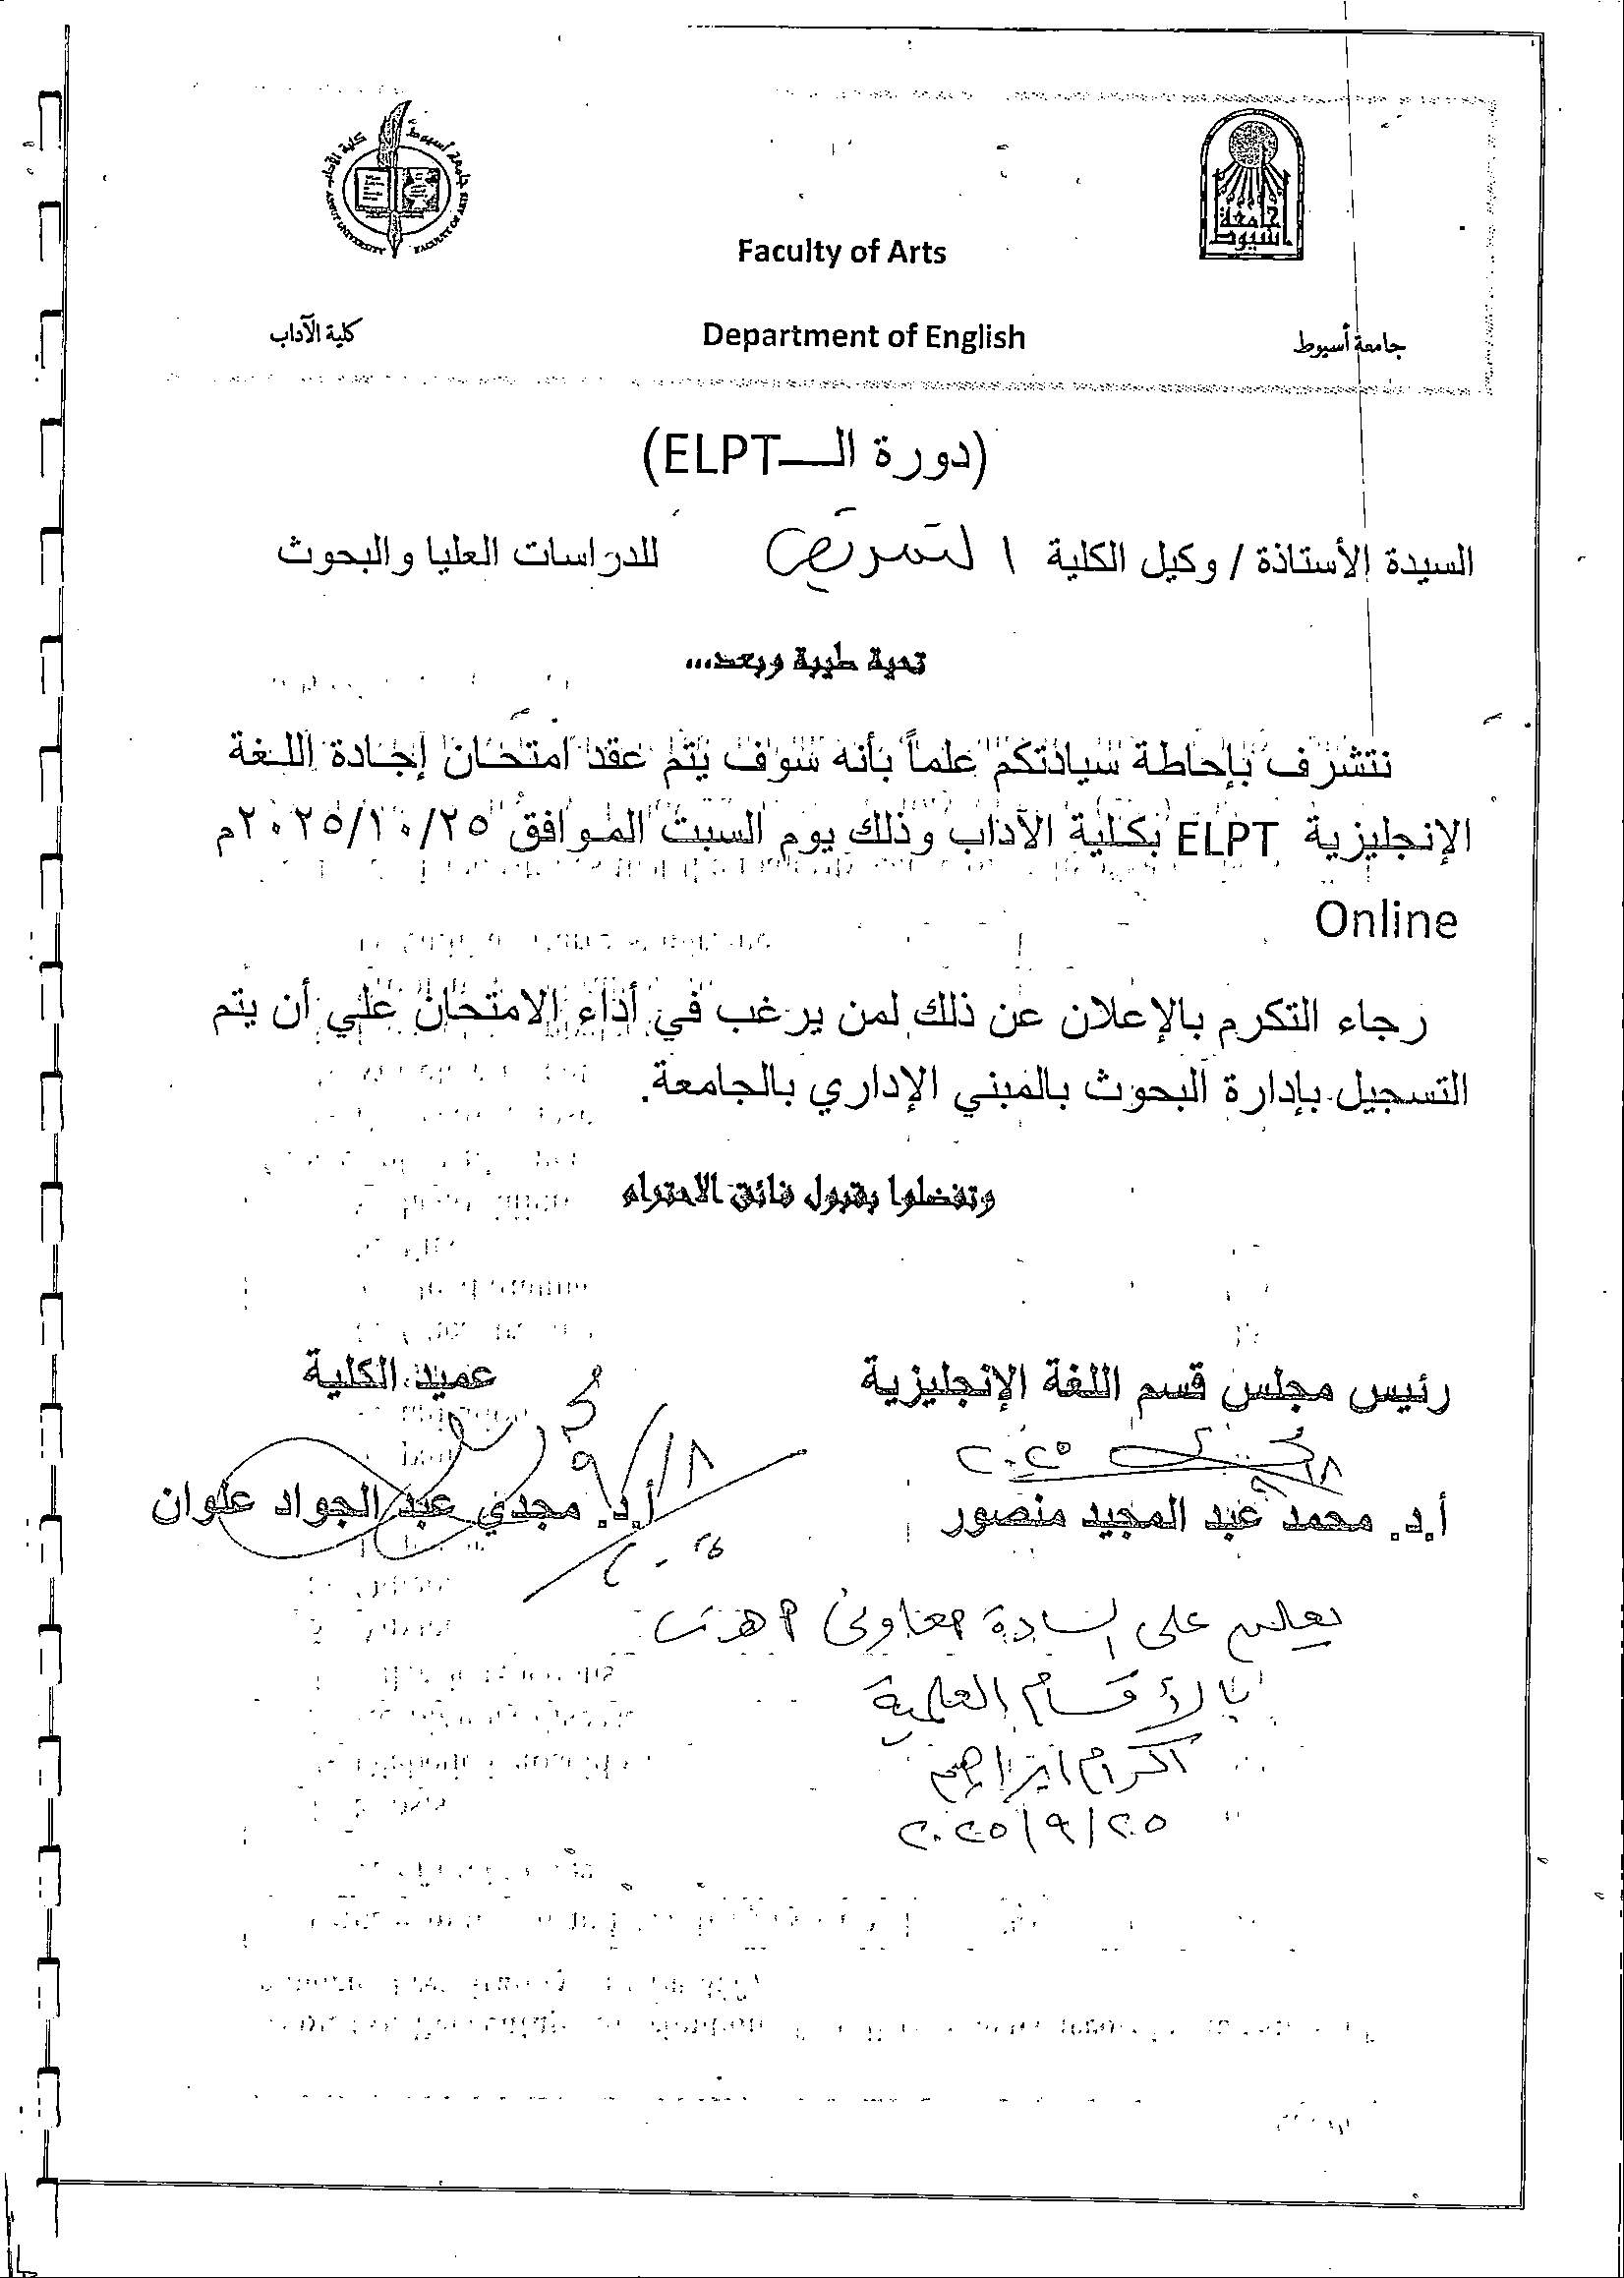 كلية الآداب جامعة أسيوط
ASSIUT UNIVERSITY FACULTY OF ARTS
جامعة أسيوط
Faculty of Arts
كلية الآداب
Department of English
جامعة أسيوط
(دورة الـــELPT)
السيدة الأستاذة / وكيل الكلية التمريض للدراسات العليا والبحوث
تحية طيبة وبعد...
نتشرف بإحاطة سيادتكم علماً بأنه سوف يتم عقد امتحان إجادة اللغة
الإنجليزية ELPT بكلية الآداب وذلك يوم السبت الموافق ٢٠٢٥/١٠/٢٥م
Online
رجاء التكرم بالإعلان عن ذلك لمن يرغب في أداء الامتحان علي أن يتم
التسجيل بإدارة البحوث بالمبني الإداري بالجامعة.
وتفضلوا بقبول فائق الاحترام
رئيس مجلس قسم اللغة الإنجليزية
عميد الكلية
أ.د. محمد عبد المجيد منصور
أ.د. مجدي عبد الجواد علوان
يعلن على السادة معاونى
بالأقسام العلمية
اكرام ابراهيم
٢٠٢٥/٩/٢٥